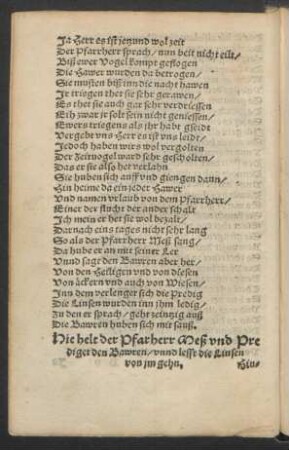 Ja Herr es ist jetzund wol zeit
Der Pfarrherr sprach / nun beit nicht eilt /
Biß ewer Vogel kompt geflogen
Die Hawer wurden da betrogen /
Sie musten biß inn die nacht hawen
Jr triegen thet sie sehr gerawen /
Es thet sie auch gar sehr verdriessen
Eih zwar jr solt sein nicht geniessen /
Ewers triegens als jhr habt gseidt
Vergebt vns Herr es ist vns leidt /
Jedoch haben wirs wol vergolten
Der Zeitvogel ward sehr gescholten /
Das er sie also her verlahn
Sie huben sich auff vnd giengen dann /
Hin heime da ein jeder Hawer
Vnd namen vrlaub von dem Pfarrherr /
Einer der flucht der ander schalt
Ich mein er het sie wol bezalt /
Darnach eins tages nicht sehr lang
So als der Pfarrherr Meß sang /
Da hube er an mit seiner Ler
Vnnd sagt den Bawren aber her /
Von den Heiligen vnd von diesen
Von äckern vnd auch von Wiesen /
Inn dem verlenger sich die Predig
Die Linsen wurden inn jhm ledig /
Zu den er sprach / geht eintzig auß
Die Bawren huben sich mit sauß.
Hie helt der Pfarherr Meß vnd Pre
diget den Bawren / vnnd lesst die Linsen
von jm gehn.
Hin-